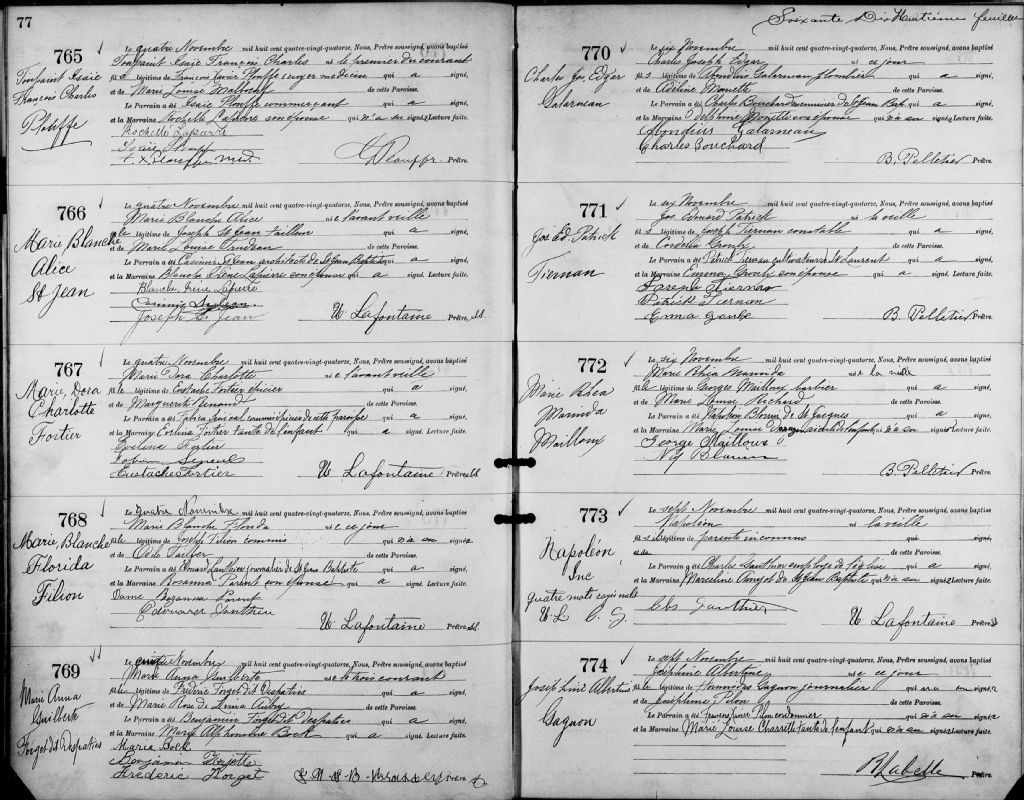 77
765
Le quatre Novembre mil huit cent quatre-vingt-quatorze, Nous, Prêtre soussigné, avons baptisé
Toussaint Isaïe François Charles né le premier du courant
fils légitime de François Xavier Plouffe médecin qui a signé,
et de Marie Louise de cette Paroisse.
Le Parrain a été Isaïe Plouffe commerçant qui a signé,
et la Marraine Rochelle son épouse qui n'a su signer Lecture faite.
Toussaint Isaïe
François Charles
Plouffe
Rochelle Lapierre
Isaïe Plouffe
F. X. Plouffe M.D.
Plouffe Prêtre.
766
Le quatre Novembre mil huit cent quatre-vingt-quatorze, Nous, Prêtre soussigné, avons baptisé
Marie Blanche Alice née l'avant veille
fille légitime de Joseph St Jean tailleur qui a signé,
et de Marie Louise de cette Paroisse.
Le Parrain a été Casimir St Jean architecte de St Jean Baptiste qui a signé,
et la Marraine Blanche Irène Lapierre son épouse qui a signé. Lecture faite.
Marie Blanche
Alice
St Jean
Blanche Irène Lapierre
Casimir St Jean
Joseph St Jean
U. Lafontaine Prêtre
767
Le quatre Novembre mil huit cent quatre-vingt-quatorze, Nous, Prêtre soussigné, avons baptisé
Marie Dora Charlotte née l'avant veille
fille légitime de Eustache Fortier épicier qui a signé,
et de Marguerite Renaud de cette Paroisse.
Le Parrain a été de cette paroisse qui a signé,
et la Marraine Evelina Fortier tante de l'enfant qui a signé. Lecture faite.
Marie, Dora
Charlotte
Fortier
Evelina Fortier
Eustache Fortier
U. Lafontaine Prêtre
768
Le quatre Novembre mil huit cent quatre-vingt-quatorze, Nous, Prêtre soussigné, avons baptisé
Marie Blanche Florida née ce jour
fille légitime de Joseph Filion commis qui n'a su signer
et de Odile de cette Paroisse.
Le Parrain a été Edouard Gauthier journalier de St Jean Baptiste qui a signé,
et la Marraine Rosanna Parent son épouse qui a signé. Lecture faite.
Marie, Blanche
Florida
Filion
Dame Rozanna Parent
Edouard Gauthier
U. Lafontaine Prêtre
769
Le quatre Novembre mil huit cent quatre-vingt-quatorze, Nous, Prêtre soussigné, avons baptisé
Marie Anna Guilberte née le trois courant
fille légitime de Frédéric Forget dit Despaties qui a signé,
et de Marie Rose de Lima Aubry de cette Paroisse.
Le Parrain a été Benjamin Forget dit Despaties qui a signé,
et la Marraine Marie Alphonsine Bock qui a signé. Lecture faite.
Marie Anna
Guilberte
Forget dit Despaties
Marie Bock
Benjamin Forget
Frederic Forget
Prêtre
Soixante Dix Huitième feuillet
770
Le six Novembre mil huit cent quatre-vingt-quatorze, Nous, Prêtre soussigné, avons baptisé
Charles Joseph Edgar né ce jour
fils légitime de Mondius Galarneau plombier qui a signé,
et de Adeline Monette de cette Paroisse.
Le Parrain a été Charles Bouchard menuisier de St Jean Bapt. qui a signé,
et la Marraine Delphine Monette son épouse qui n'a su signer Lecture faite.
Charles Jos. Edgar
Galarneau
Mondius Galarneau
Charles Bouchard
B. Pelletier Prêtre.
771
Le six Novembre mil huit cent quatre-vingt-quatorze, Nous, Prêtre soussigné, avons baptisé
Jos Edouard Patrick né la veille
fils légitime de Joseph Tiernan constable qui a signé,
et de Cordelia de cette Paroisse.
Le Parrain a été Patrick Tiernan cultivateur de St Laurent qui a signé,
et la Marraine Emma son épouse qui a signé. Lecture faite.
Jos. Ed. Patrick
Tiernan
Joseph Tiernan
Patrick Tiernan
Emma
B. Pelletier Prêtre.
772
Le six Novembre mil huit cent quatre-vingt-quatorze, Nous, Prêtre soussigné, avons baptisé
Marie Rhéa Wannida née la veille
fille légitime de Georges Mailloux barbier qui a signé,
et de Marie Louise Richard de cette Paroisse.
Le Parrain a été Napoléon Blouin de St Jacques qui a signé,
et la Marraine Marie Louise de l'enfant qui n'a su signer Lecture faite.
Marie Rhéa
Wannida
Mailloux
George Mailloux
Nap Blouin
B. Pelletier Prêtre.
773
Le sept Novembre mil huit cent quatre-vingt-quatorze, Nous, Prêtre soussigné, avons baptisé
Napoléon né la veille
fils légitime de parents inconnus qui signé,
et de de cette Paroisse.
Le Parrain a été Charles Gauthier employé de l'église qui a signé,
et la Marraine Marceline de St Jean Baptiste qui n'a su signer Lecture faite.
Napoléon
Inc
quatre mots rayés nuls
U. L. C. G.
Chs Gauthier
U. Lafontaine Prêtre
774
Le sept Novembre mil huit cent quatre-vingt-quatorze, Nous, Prêtre soussigné, avons baptisé
Joséphine Albertine née ce jour
fille légitime de Hormisdas Gagnon journalier qui n'a su signer
et de Joséphine Pilon de cette Paroisse.
Le Parrain a été Pilon cordonnier qui n'a su signer
et la Marraine Marie Louise Charette tante de l'enfant qui n'a su signer Lecture faite.
Joséphine Albertine
Gagnon
Labelle Prêtre.